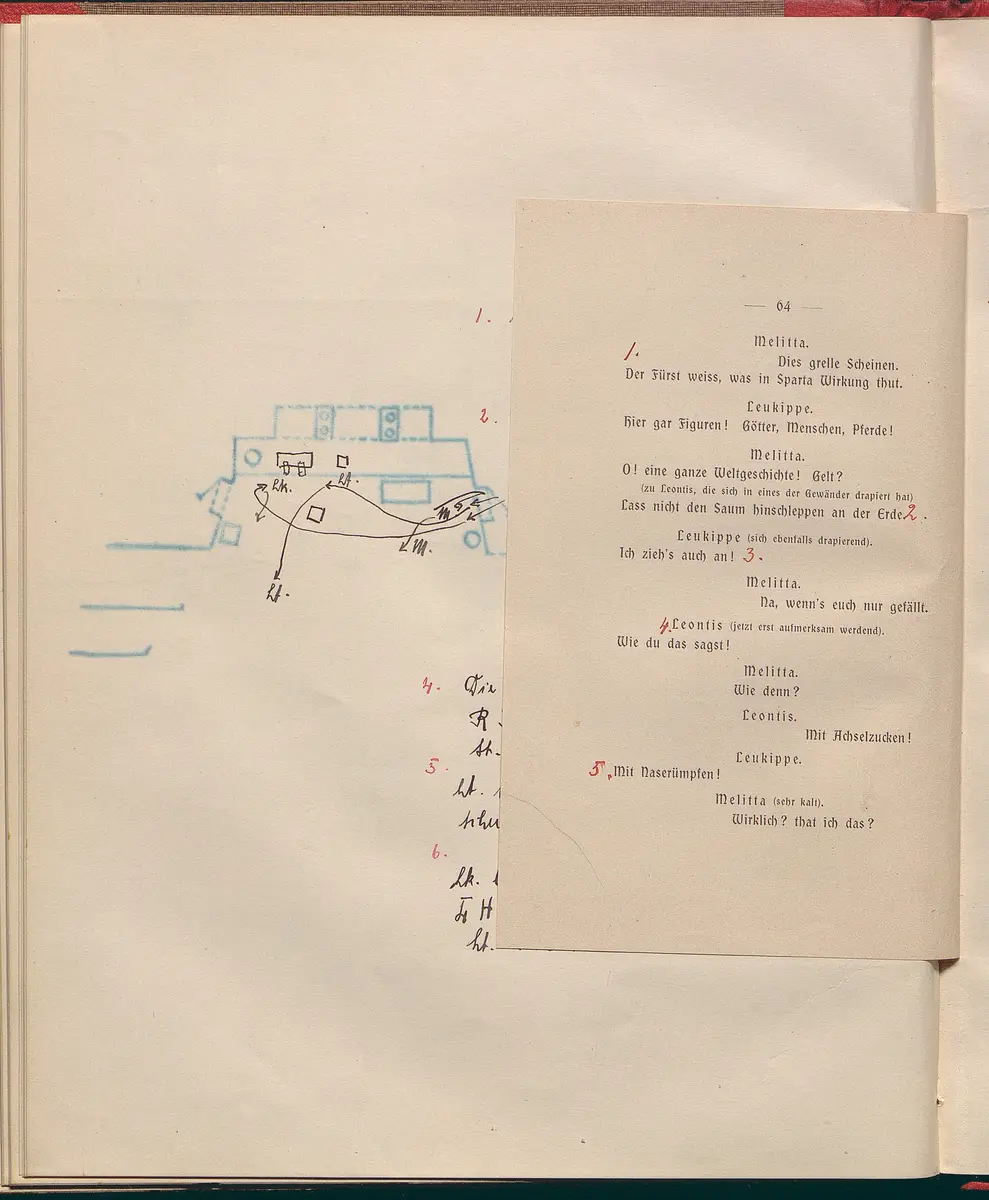 1.
2.
Lk.
Lt.
M
M.
Lt.
4. Die
R.
St.
5.
Lt.
schu
6.
Lk.
H
Lt.
— 64 —
Melitta.
1.
Dies grelle Scheinen.
Der Fürst weiss, was in Sparta Wirkung thut.
Leukippe.
Hier gar Figuren! Götter, Menschen, Pferde!
Melitta.
O! eine ganze Weltgeschichte! Gelt?
(zu Leontis, die sich in eines der Gewänder drapiert hat)
Lass nicht den Saum hinschleppen an der Erde 2.
Leukippe (sich ebenfalls drapierend).
Ich zieh's auch an! 3.
Melitta.
Na, wenn's euch nur gefällt.
4. Leontis (jetzt erst aufmerksam werdend).
Wie du das sagst!
Melitta.
Wie denn?
Leontis.
Mit Achselzucken!
Leukippe.
5. Mit Naserümpfen!
Melitta (sehr kalt).
Wirklich? that ich das?